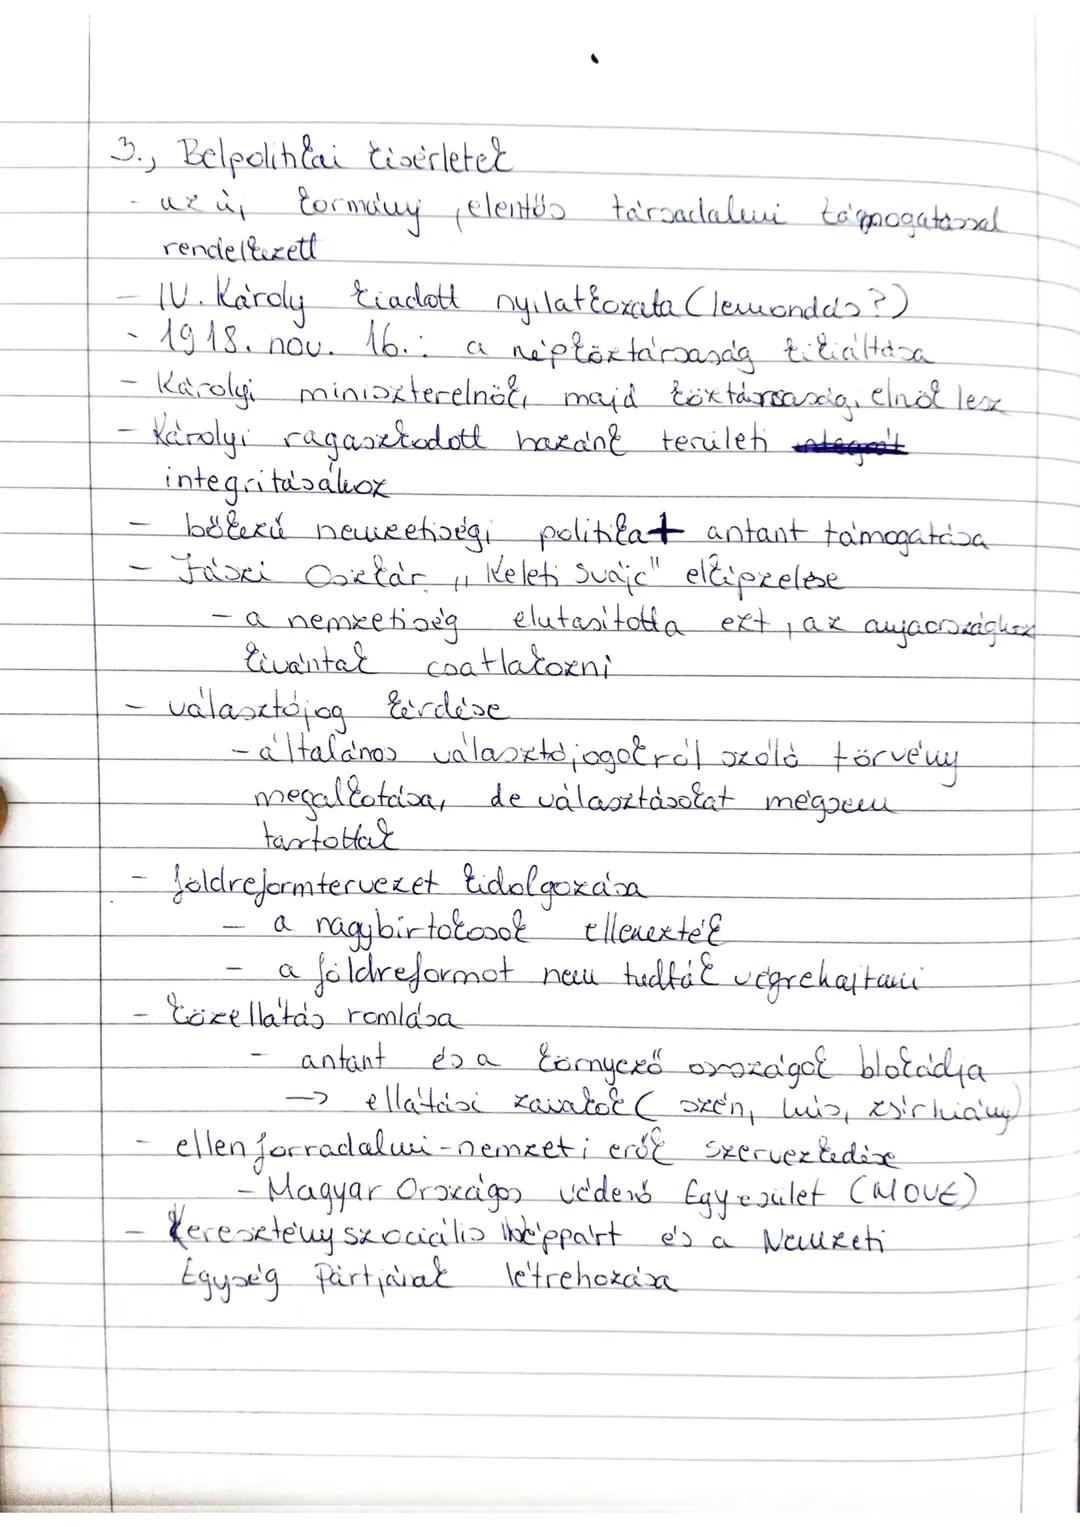 3., Belpolitikai kísérletek
- az új kormány jelentős társadalmi támogatással
rendelkezett
- IV. Károly kiadott nyilatkozata (lemondás?)
- 1918. nov. 16.: a népköztársaság kikiáltása
- Károlyi miniszterelnök, majd köztársasági elnök lesz
- Károlyi ragaszkodott hazánk területi
integritásához
- bőkezű nemzetiségi politika + antant támogatása
- Jászi Oszkár „Keleti Svájc" elképzelése
- a nemzetiség elutasította ezt, az anyaországhoz
kívántak csatlakozni
- választójog kérdése
- általános választójogokról szóló törvény
megalkotása, de választásokat mégsem
tartottak
- földreformtervezet kidolgozása
- a nagybirtokosok ellenezték
- a földreformot nem tudták végrehajtani
- közellátás romlása
- antant és a környező országok blokádja
-> ellátási zavarok (szén, hús, zsírhiány)
- ellenforradalmi-nemzeti erők szerveződése
- Magyar Országos Véderő Egyesület (MOVE)
- Keresztényszociális Néppárt és a Nemzeti
Egység Pártjának létrehozása